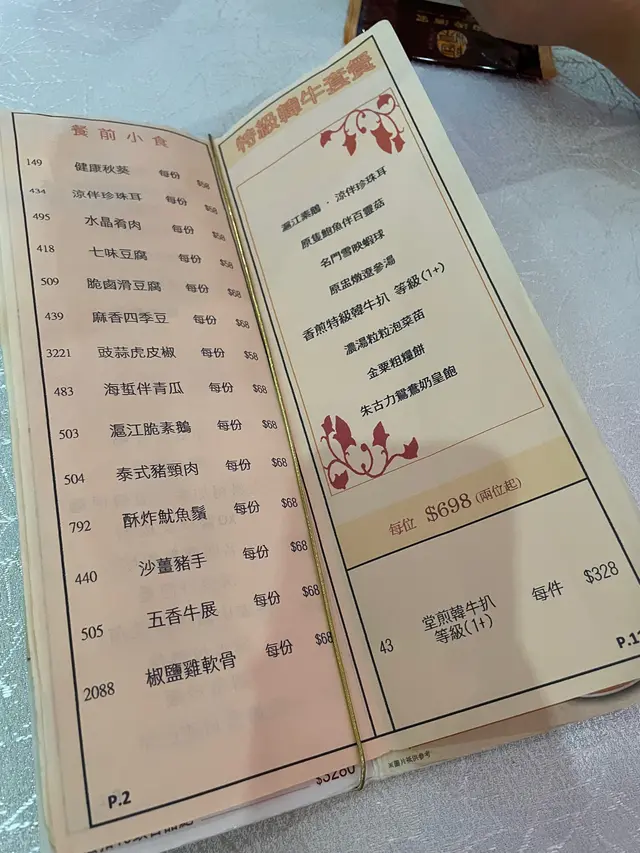 餐前小食
149 健康秋葵 每份 $58
434 涼伴珍珠耳 每份 $58
495 水晶肴肉 每份 $58
418 七味豆腐 每份 $58
509 脆鹵滑豆腐 每份 $58
439 麻香四季豆 每份 $58
3221 豉蒜虎皮椒 每份 $58
483 海蜇伴青瓜 每份 $68
503 滬江脆素鵝 每份 $68
504 泰式豬頸肉 每份 $68
792 酥炸魷魚鬚 每份 $68
440 沙薑豬手 每份 $68
505 五香牛展 每份 $68
2088 椒鹽雞軟骨 每份 $68
P.2
特級韓牛套餐
滬江素鵝 · 涼伴珍珠耳
原隻鮑魚伴百靈菇
名門雪映蝦球
原盅燉遼參湯
香煎特級韓牛扒 等級(1+)
濃湯粒粒泡菜苗
金粟粗糧餅
朱古力鴛鴦奶皇飽
每位 $698 (兩位起)
43 堂煎韓牛扒 每件 $328
等級(1+)
$3280